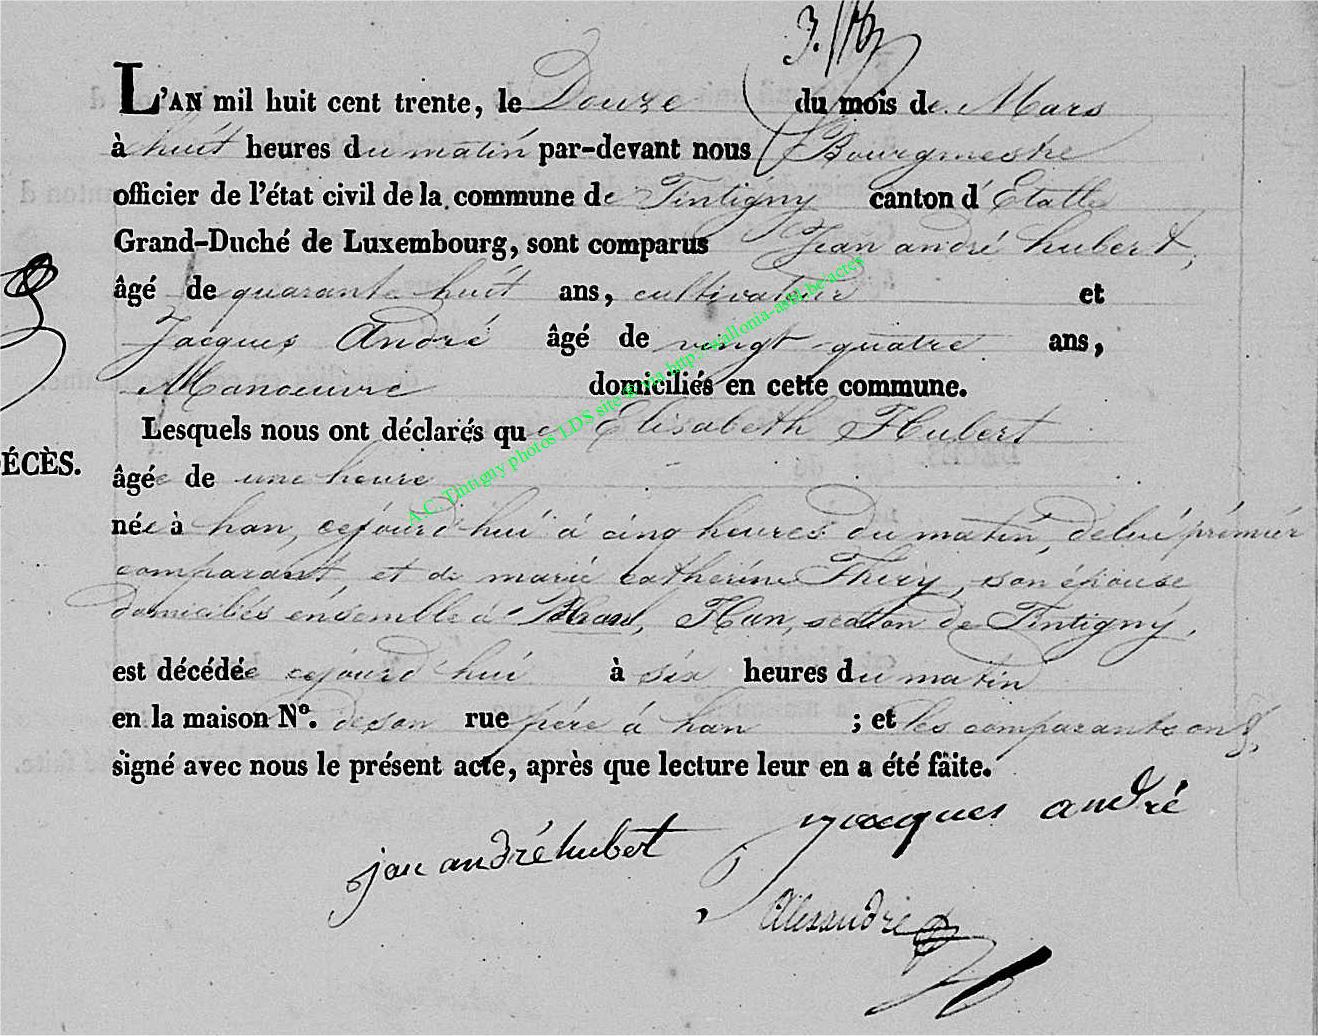 L'AN mil huit cent trente, le Douze du mois de Mars
à huit heures du matin par-devant nous Bourgmestre
officier de l'état civil de la commune de Tintigny canton d'Etalle
Grand-Duché de Luxembourg, sont comparus Jean andré hubert,
âgé de quarante huit ans, cultivateur et
Jacques André âgé de vingt-quatre ans,
Manoeuvre domiciliés en cette commune.
Lesquels nous ont déclarés que Elisabeth Hubert
DÉCÈS.
âgée de une heure
née à han, cejourd'hui à cinq heures du matin, delui prémier
comparant, et de marie catherine Thiry, son épouse
domiciliés énsemblé à Han, section de Tintigny,
est décédée cejourd'hui à six heures du matin
en la maison N°. deson rue père à han ; et les comparants ont
signé avec nous le présent acte, après que lecture leur en a été faite.
jacques andré
jan andré hubert
Alessandre
A.C. Tintigny photos LDS site & via http://wallonia-asbl.be/actes